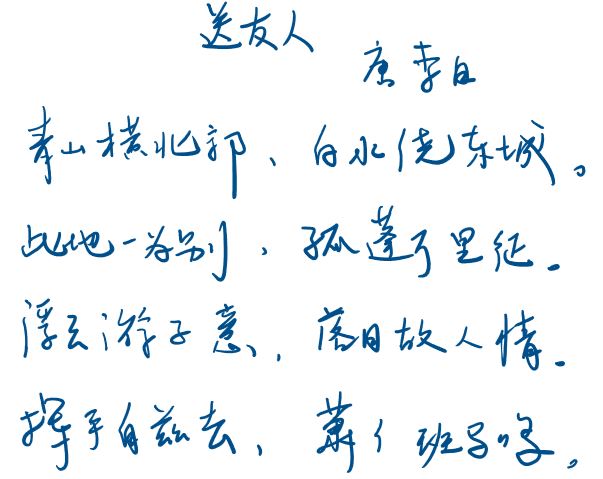 送友人
唐 李白
青山横北郭、白水绕东城。
此地一为别，孤蓬万里征。
浮云游子意，落日故人情。
挥手自兹去，萧々班马鸣。